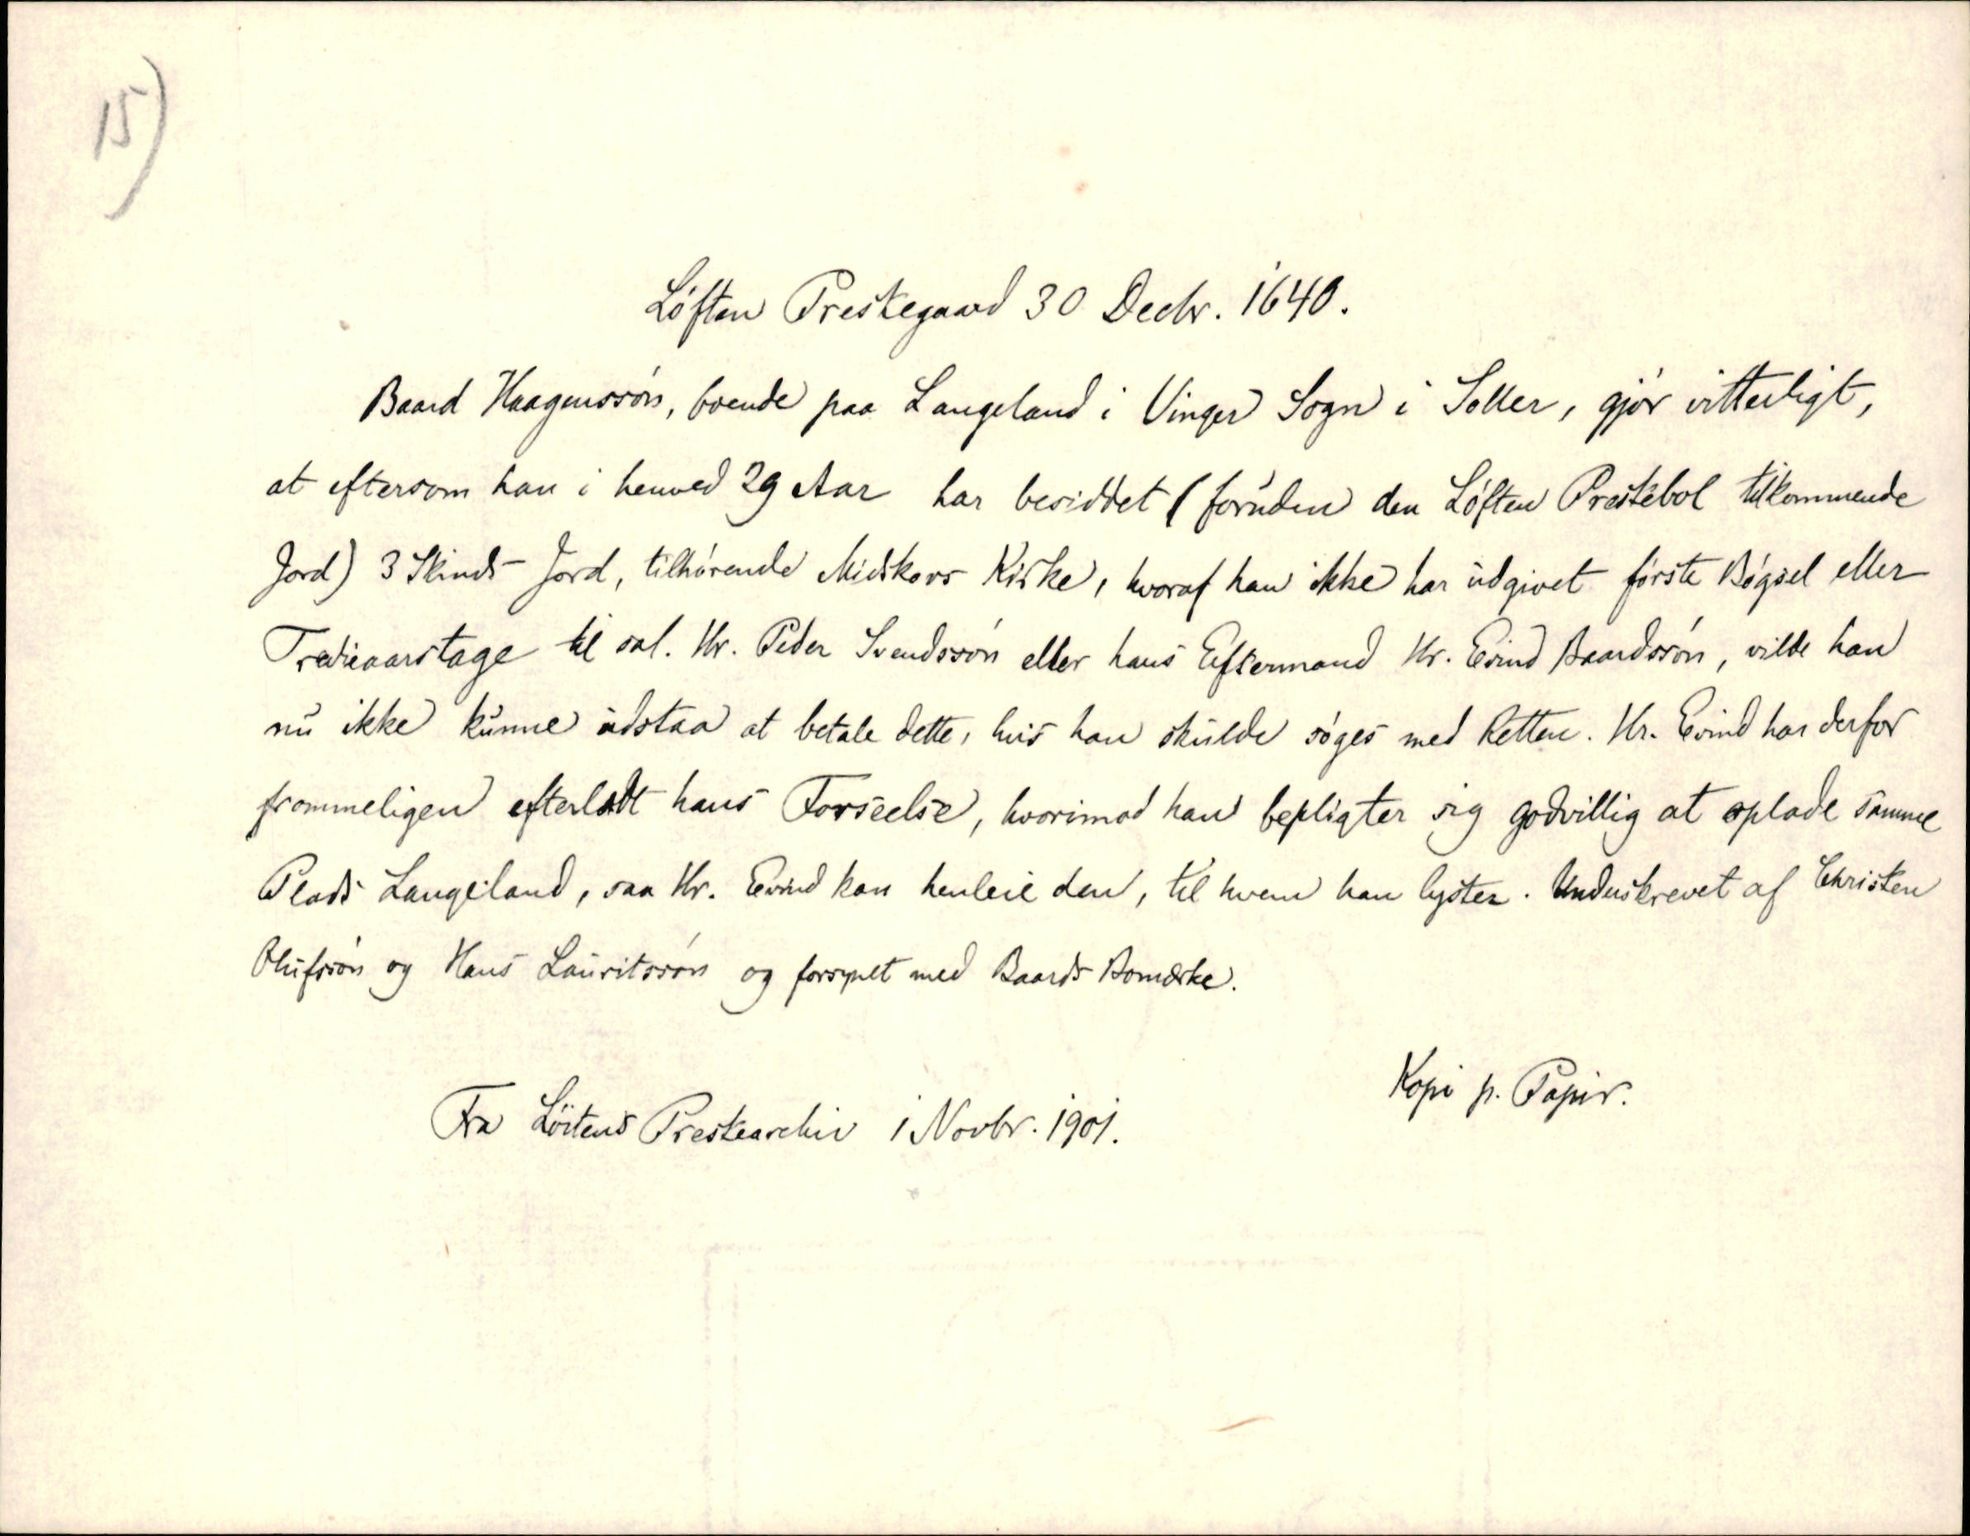 15)
Løften Prestegaard 30 Decbr. 1640.
Baard Haagenssøn, boende paa Langeland i Vinger Sogn i Soller, gjør vitterligt,
at eftersom han i henved 29 Aar har besiddet (foruden den Løften Prestebol tilkommende
Jord) 3 Skinds Jord, tilhørende Midskovs Kirke, hvoraf han ikke har udgivet første Bøgsel eller
Tredieaarstage til sal. Hr. Peder Svendssøn eller hans Eftermand Hr. Evind Baardssøn, vilde han
nu ikke kunne udstaa at betale dette, hvis han skulde søges med Retten. Hr. Evind har derfor
frommeligen efterladt hans Forseelse, hvorimod han bepligter sig godvillig at oplade samme
Plads Langeland, saa Hr. Evind kan henleie den, til hvem han lyster. Underskrevet af Christen
Olufssøn og Hans Lauritssøn og forsynet med Baards Bomærke.
Kopi p. Papir.
Fra Løitens Prestearchiv i Novbr. 1901.